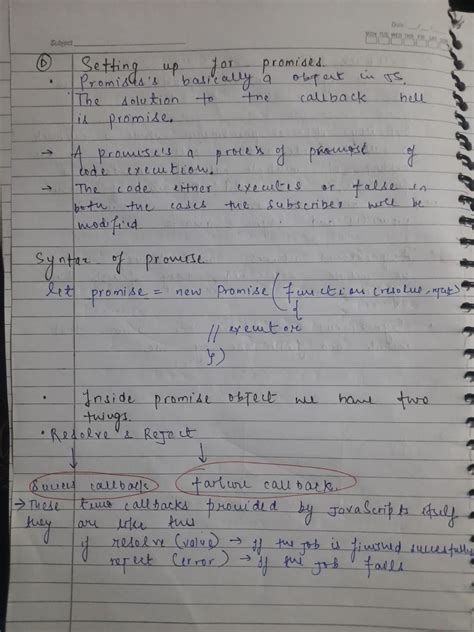 Date
Subject
MON TUE WED THU FRI SAT SUN
⑥ Setting up for promises.
• Promises's basically a object in JS.
The solution to the callback hell
is promise.
→ A promise's a proses of promise of
code execution.
→ The code either executes or false in
both the cases the subscriber will be
modified
Syntax of promise
let promise = new Promise (function (resolve, reject)
{
// executor
})
• Inside promise object we have two
things.
• Resolve & Reject
↓ ↓
Succes callback failure callback
→ These two callbacks provided by JavaScripts itself
they are like this
resolve (value) → if the job is finished sucessfully
reject (error) → if the job fails